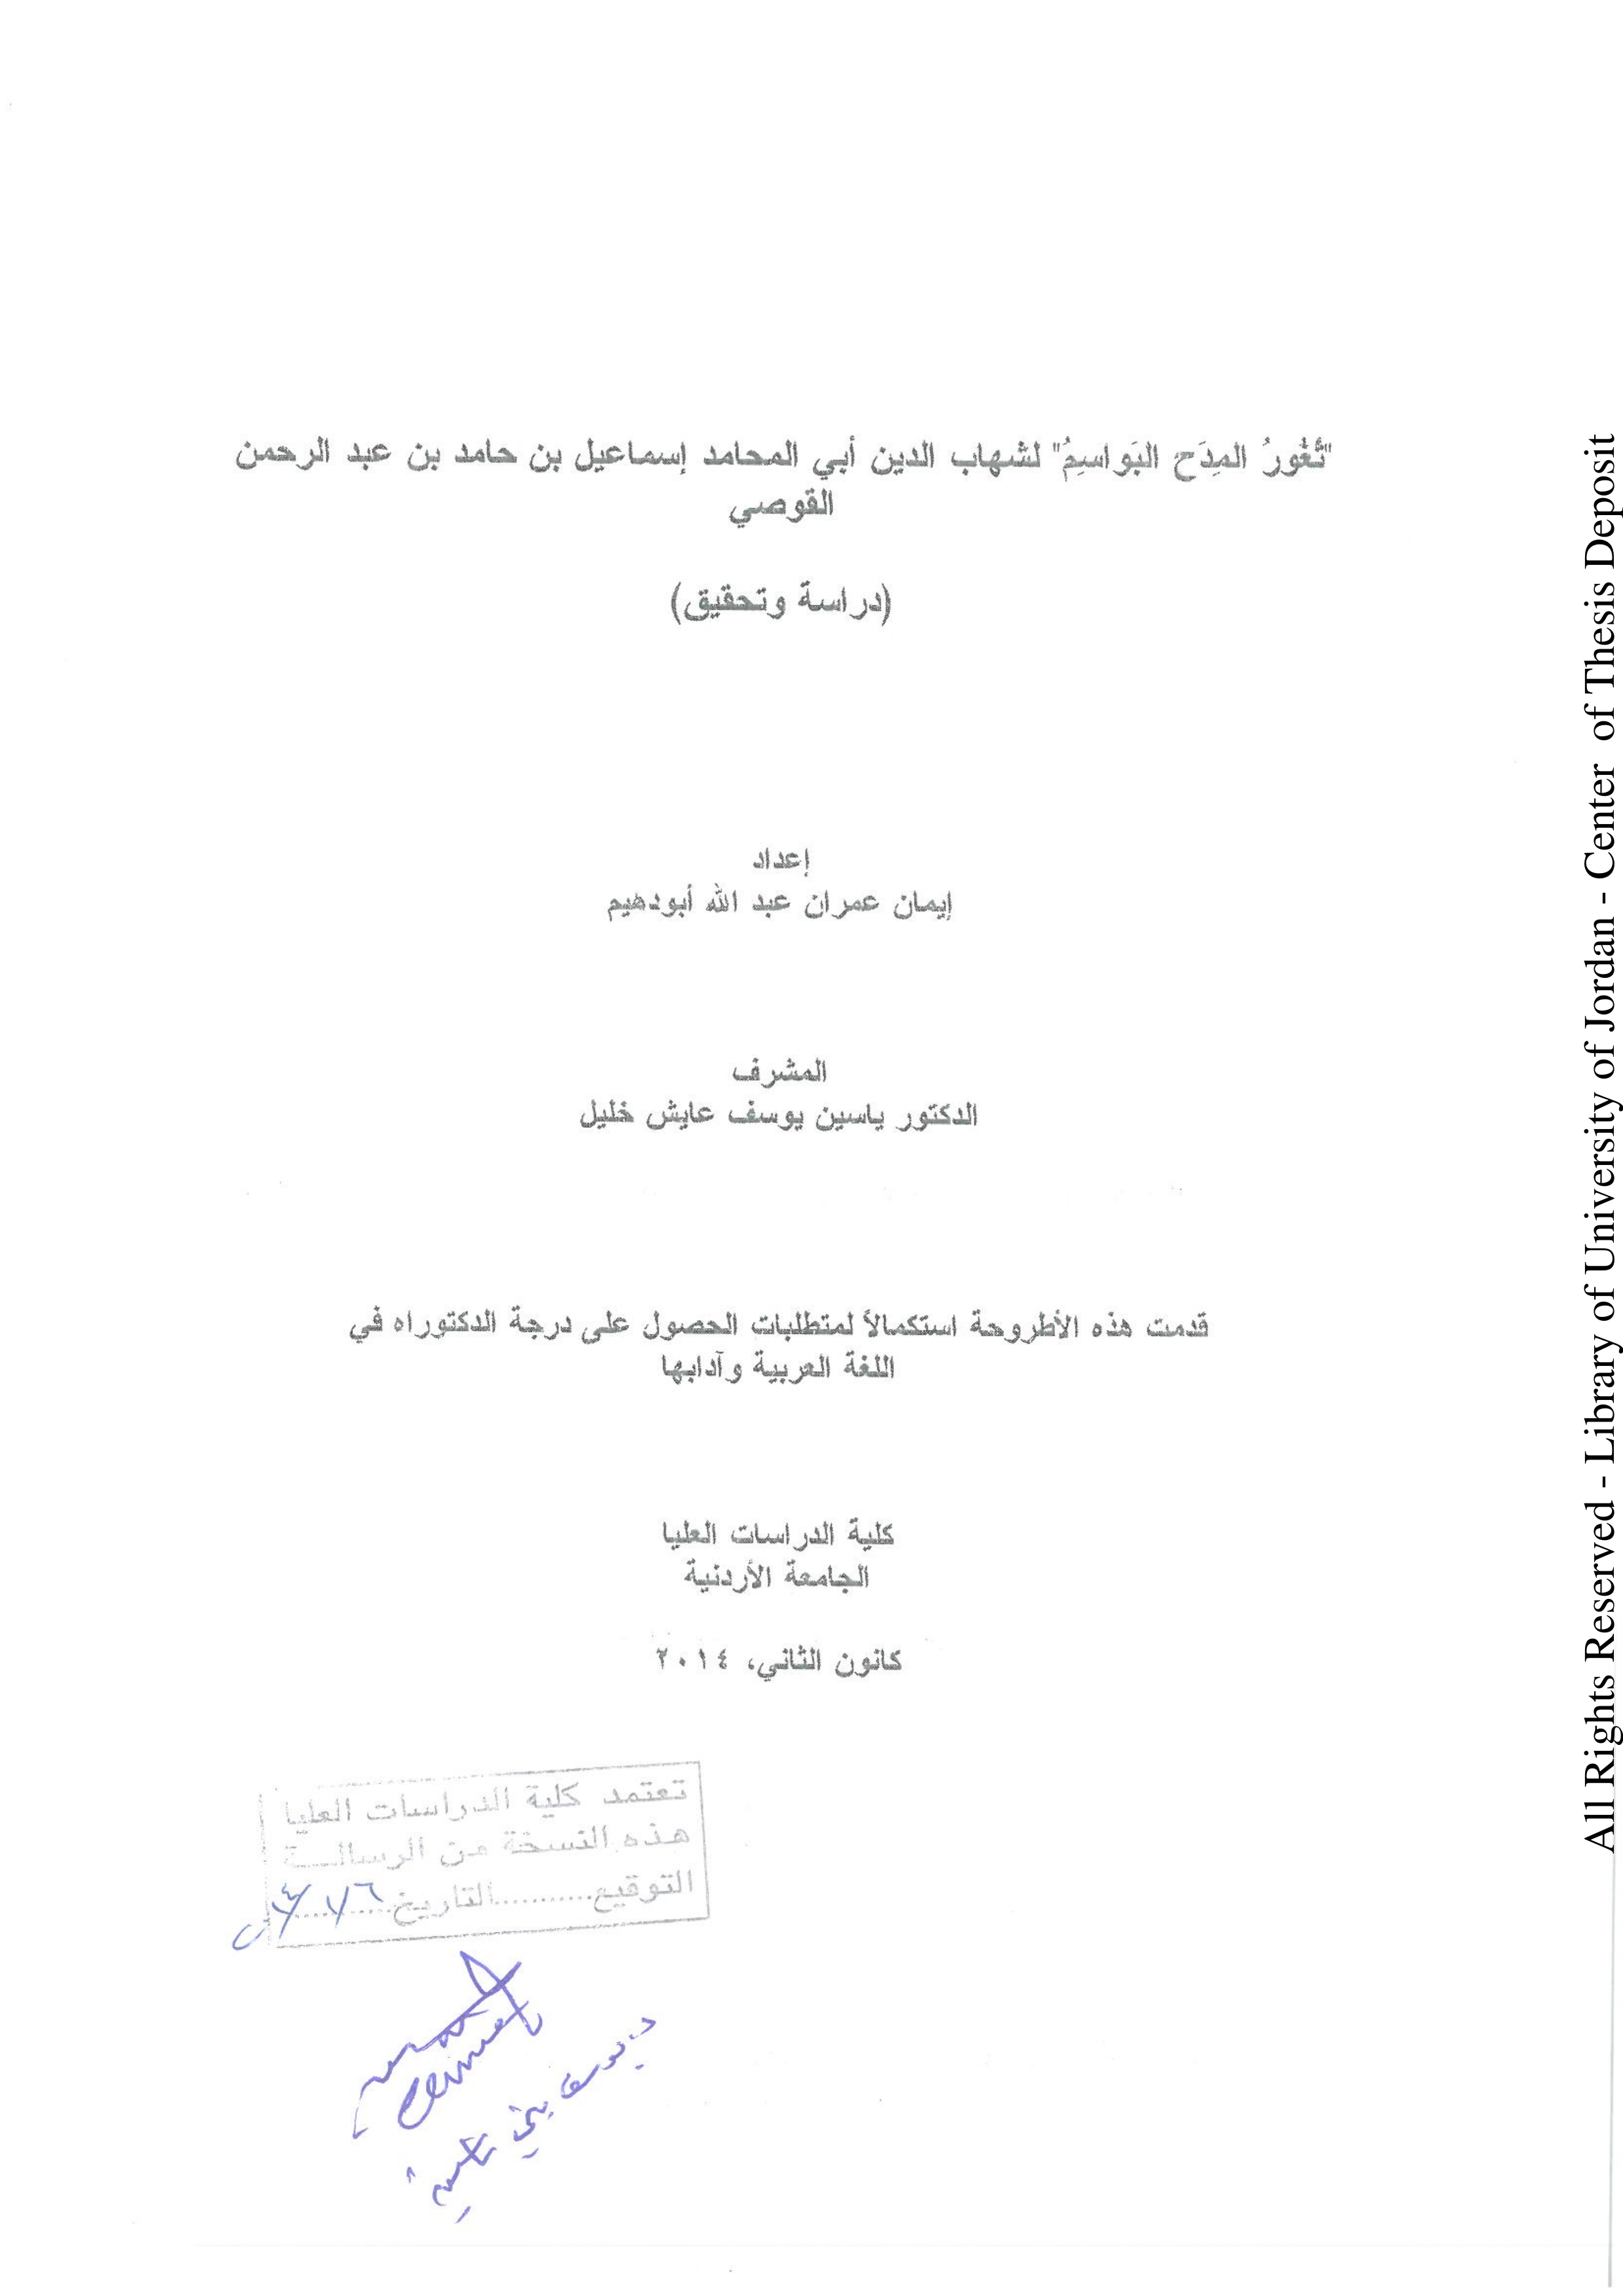 "ثُغُورُ المِدَح البَواسِمُ" لشهاب الدين أبي المحامد إسماعيل بن حامد بن عبد الرحمن
القوصي
(دراسة وتحقيق)
إعداد
إيمان عمران عبد الله أبودهيم
المشرف
الدكتور ياسين يوسف عايش خليل
قدمت هذه الأطروحة استكمالاً لمتطلبات الحصول على درجة الدكتوراه في
اللغة العربية وآدابها
كلية الدراسات العليا
الجامعة الأردنية
كانون الثاني، ٢٠١٤
تعتمد كلية الدراسات العليا
هذه النسخة من الرسالـــة
التوقيع...........التاريخ............
All Rights Reserved - Library of University of Jordan - Center of Thesis Deposit